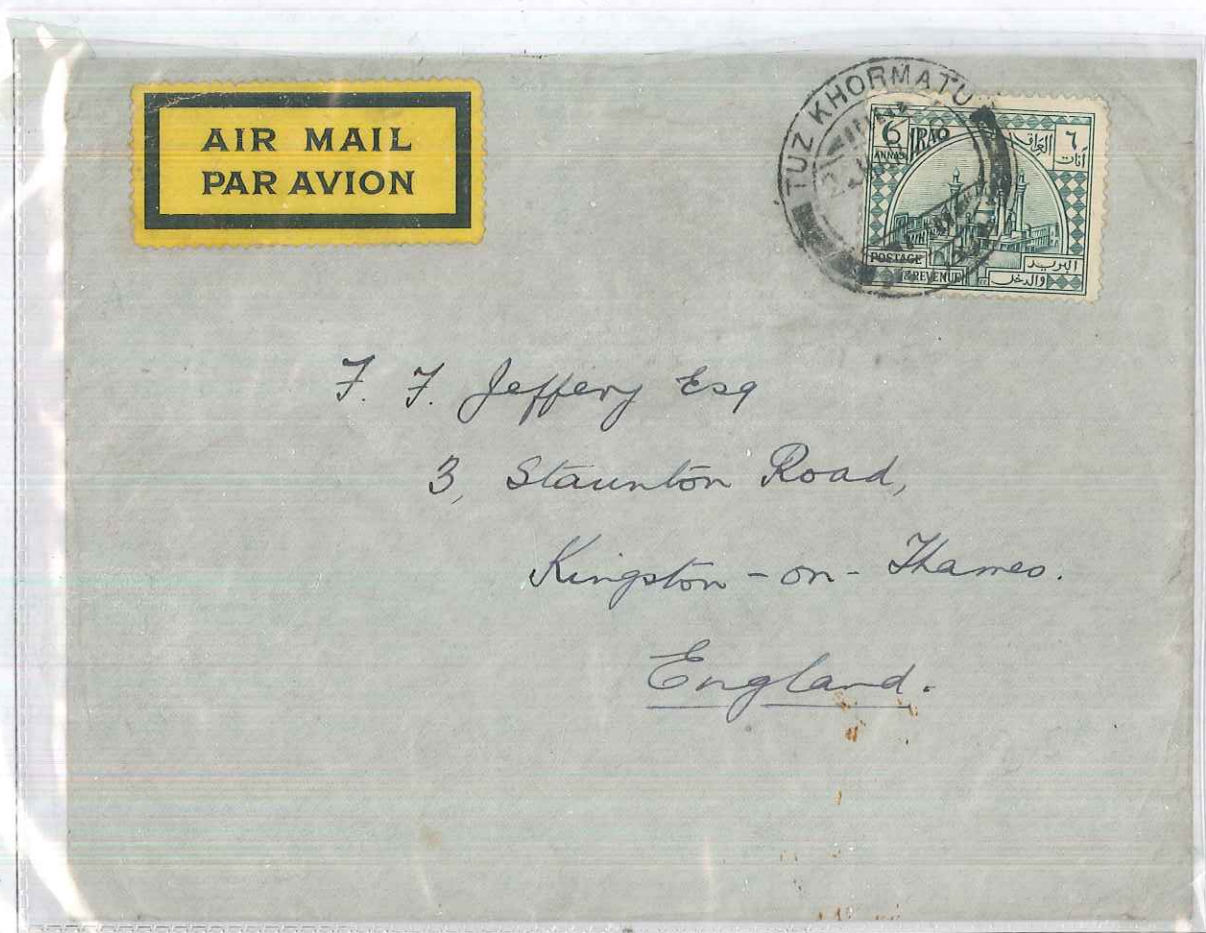 AIR MAIL
PAR AVION
TUZ KHORMATU
6 IRAQ العراق ٦
ANNAS آنات
POSTAGE البريد
& REVENUE والدخل
F. F. Jeffery Esq
3, Staunton Road,
Kingston-on-Thames.
England.